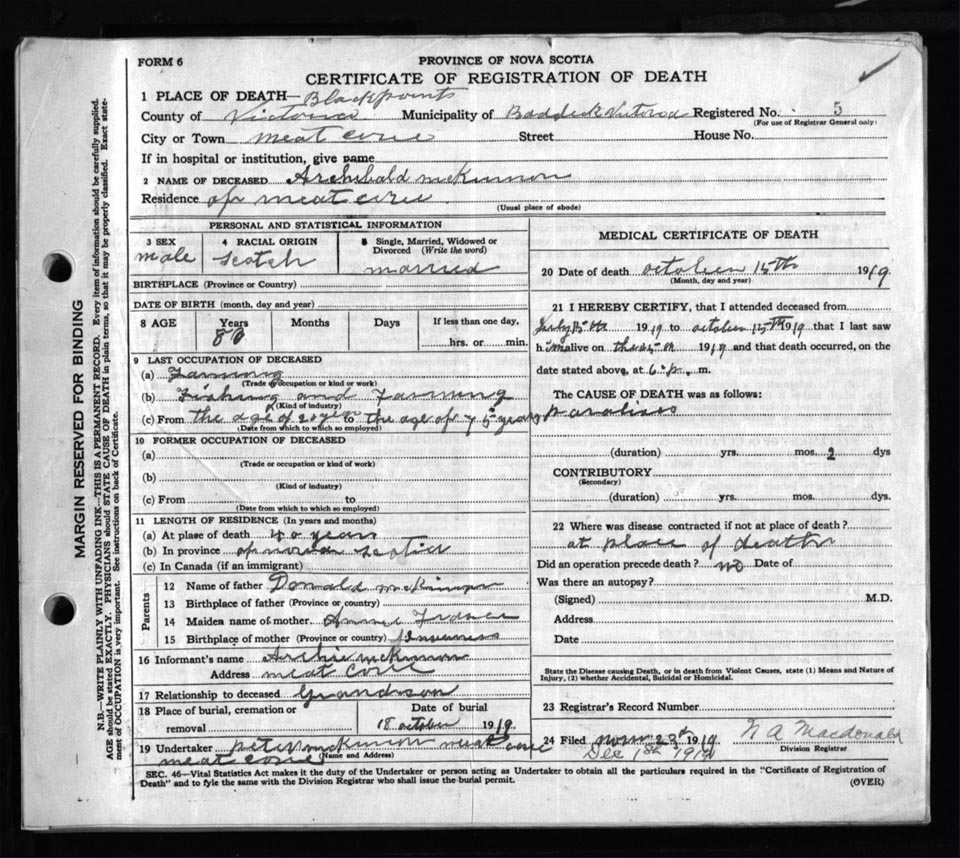 FORM 6
PROVINCE OF NOVA SCOTIA
CERTIFICATE OF REGISTRATION OF DEATH
1 PLACE OF DEATH— Blackpoint
County of Victoria Municipality of Baddeck Registered No. 5
(For use of Registrar General only)
City or Town meat cove Street House No.
If in hospital or institution, give name
2 NAME OF DECEASED Archibald McKinnon
Residence of meat cove
(Usual place of abode)
PERSONAL AND STATISTICAL INFORMATION
3 SEX male 4 RACIAL ORIGIN Scotch 5 Single, Married, Widowed or Divorced (Write the word) married
BIRTHPLACE (Province or Country)
DATE OF BIRTH (month, day and year)
8 AGE Years 80 Months Days If less than one day, hrs. or min.
9 LAST OCCUPATION OF DECEASED
(a) Farming
(Trade or occupation or kind or work)
(b) Fishing and Farming
(Kind of industry)
(c) From the age of 20 year to the age of 75 years
(Date from which to which so employed)
10 FORMER OCCUPATION OF DECEASED
(a)
(Trade or occupation or kind of work)
(b)
(Kind of industry)
(c) From to
(Date from which to which so employed)
11 LENGTH OF RESIDENCE (In years and months)
(a) At place of death 40 years
(b) In province of nova scotia
(c) In Canada (if an immigrant)
Parents
12 Name of father Donald McKinnon
13 Birthplace of father (Province or country)
14 Maiden name of mother Annie
15 Birthplace of mother (Province or country) Inverness
16 Informant's name Archie McKinnon
Address meat cove
17 Relationship to deceased Grandson
18 Place of burial, cremation or removal
Date of burial
18 october 1919.
19 Undertaker Peter McKinnon meat cove
(Name and Address)
meat cove
MEDICAL CERTIFICATE OF DEATH
20 Date of death october 15th 1919
(Month, day and year)
21 I HEREBY CERTIFY, that I attended deceased from
July 1919 to october 15th 1919 that I last saw
him alive on the 1919 and that death occurred, on the
date stated above, at 6 p. m.
The CAUSE OF DEATH was as follows:
paralises
(duration) yrs. mos. 2 dys
CONTRIBUTORY
(Secondary)
(duration) yrs. mos. dys.
22 Where was disease contracted if not at place of death?
at place of death
Did an operation precede death? no Date of
Was there an autopsy?
(Signed) M.D.
Address
Date
State the Disease causing Death, or in death from Violent Causes, state (1) Means and Nature of
Injury, (2) whether Accidental, Suicidal or Homicidal.
23 Registrar's Record Number
24 Filed 23d 1919 N A Macdonald
Dec 1st 1919
Division Registrar
SEC. 46—Vital Statistics Act makes it the duty of the Undertaker or person acting as Undertaker to obtain all the particulars required in the "Certificate of Registration of
Death" and to fyle the same with the Division Registrar who shall issue the burial permit. (OVER)
MARGIN RESERVED FOR BINDING
N.B.—WRITE PLAINLY WITH UNFADING INK—THIS IS A PERMANENT RECORD. Every item of information should be carefully supplied.
AGE should be stated EXACTLY. PHYSICIANS should STATE CAUSE OF DEATH in plain terms, so that it may be properly classified. Exact state-
ment of OCCUPATION is very important. See instructions on back of Certificate.